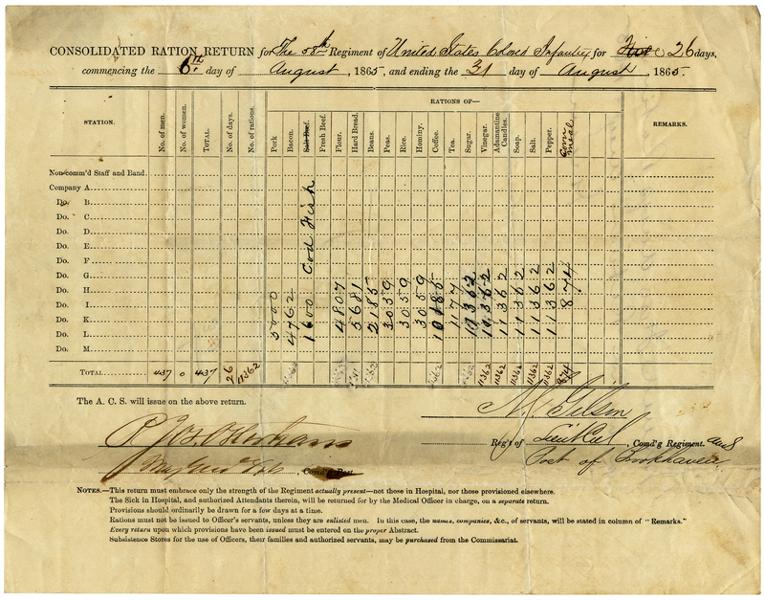 CONSOLIDATED RATION RETURN for The 58th Regiment of United States Colored Infantry for 26 days,
commencing the 6th day of August, 1865, and ending the 31 day of August, 1865.
RATIONS OF—
STATION. No. of men. No. of women. TOTAL. No. of days. No. of rations. Pork Bacon. Salt Beef. Fresh Beef. Flour. Hard Bread. Beans. Peas. Rice. Hominy. Coffee. Tea. Sugar. Vinegar. Adamantine Candles. Soap. Salt. Pepper. Corn meal REMARKS.
Non-comm'd Staff and Band.
Company A
Do. B
Do. C
Do. D
Do. E
Do. F
Do. G
Do. H
Do. I
Do. K
Do. L
Do. M
Cod Fish
5000 4762 1600 4807 5681 2185 3059 3059 3059 10185 1177 11362 11362 11362 11362 11362 11362 874
TOTAL 437 0 437 26 11362 11362 11362 11362 11362 11362 874
The A. C. S. will issue on the above return.
N. Gilson
P. Jos. Osterhaus
Reg't of Lieut Col, Comd'g Regiment. and
Maj Genl Vols, Com'g Post
Post of Brookhaven
NOTES.—This return must embrace only the strength of the Regiment actually present—not those in Hospital, nor those provisioned elsewhere.
The Sick in Hospital, and authorized Attendants therein, will be returned for by the Medical Officer in charge, on a separate return.
Provisions should ordinarily be drawn for a few days at a time.
Rations must not be issued to Officer's servants, unless they are enlisted men. In this case, the names, companies, &c., of servants, will be stated in column of "Remarks."
Every return upon which provisions have been issued must be entered on the proper Abstract.
Subsistence Stores for the use of Officers, their families and authorized servants, may be purchased from the Commissariat.